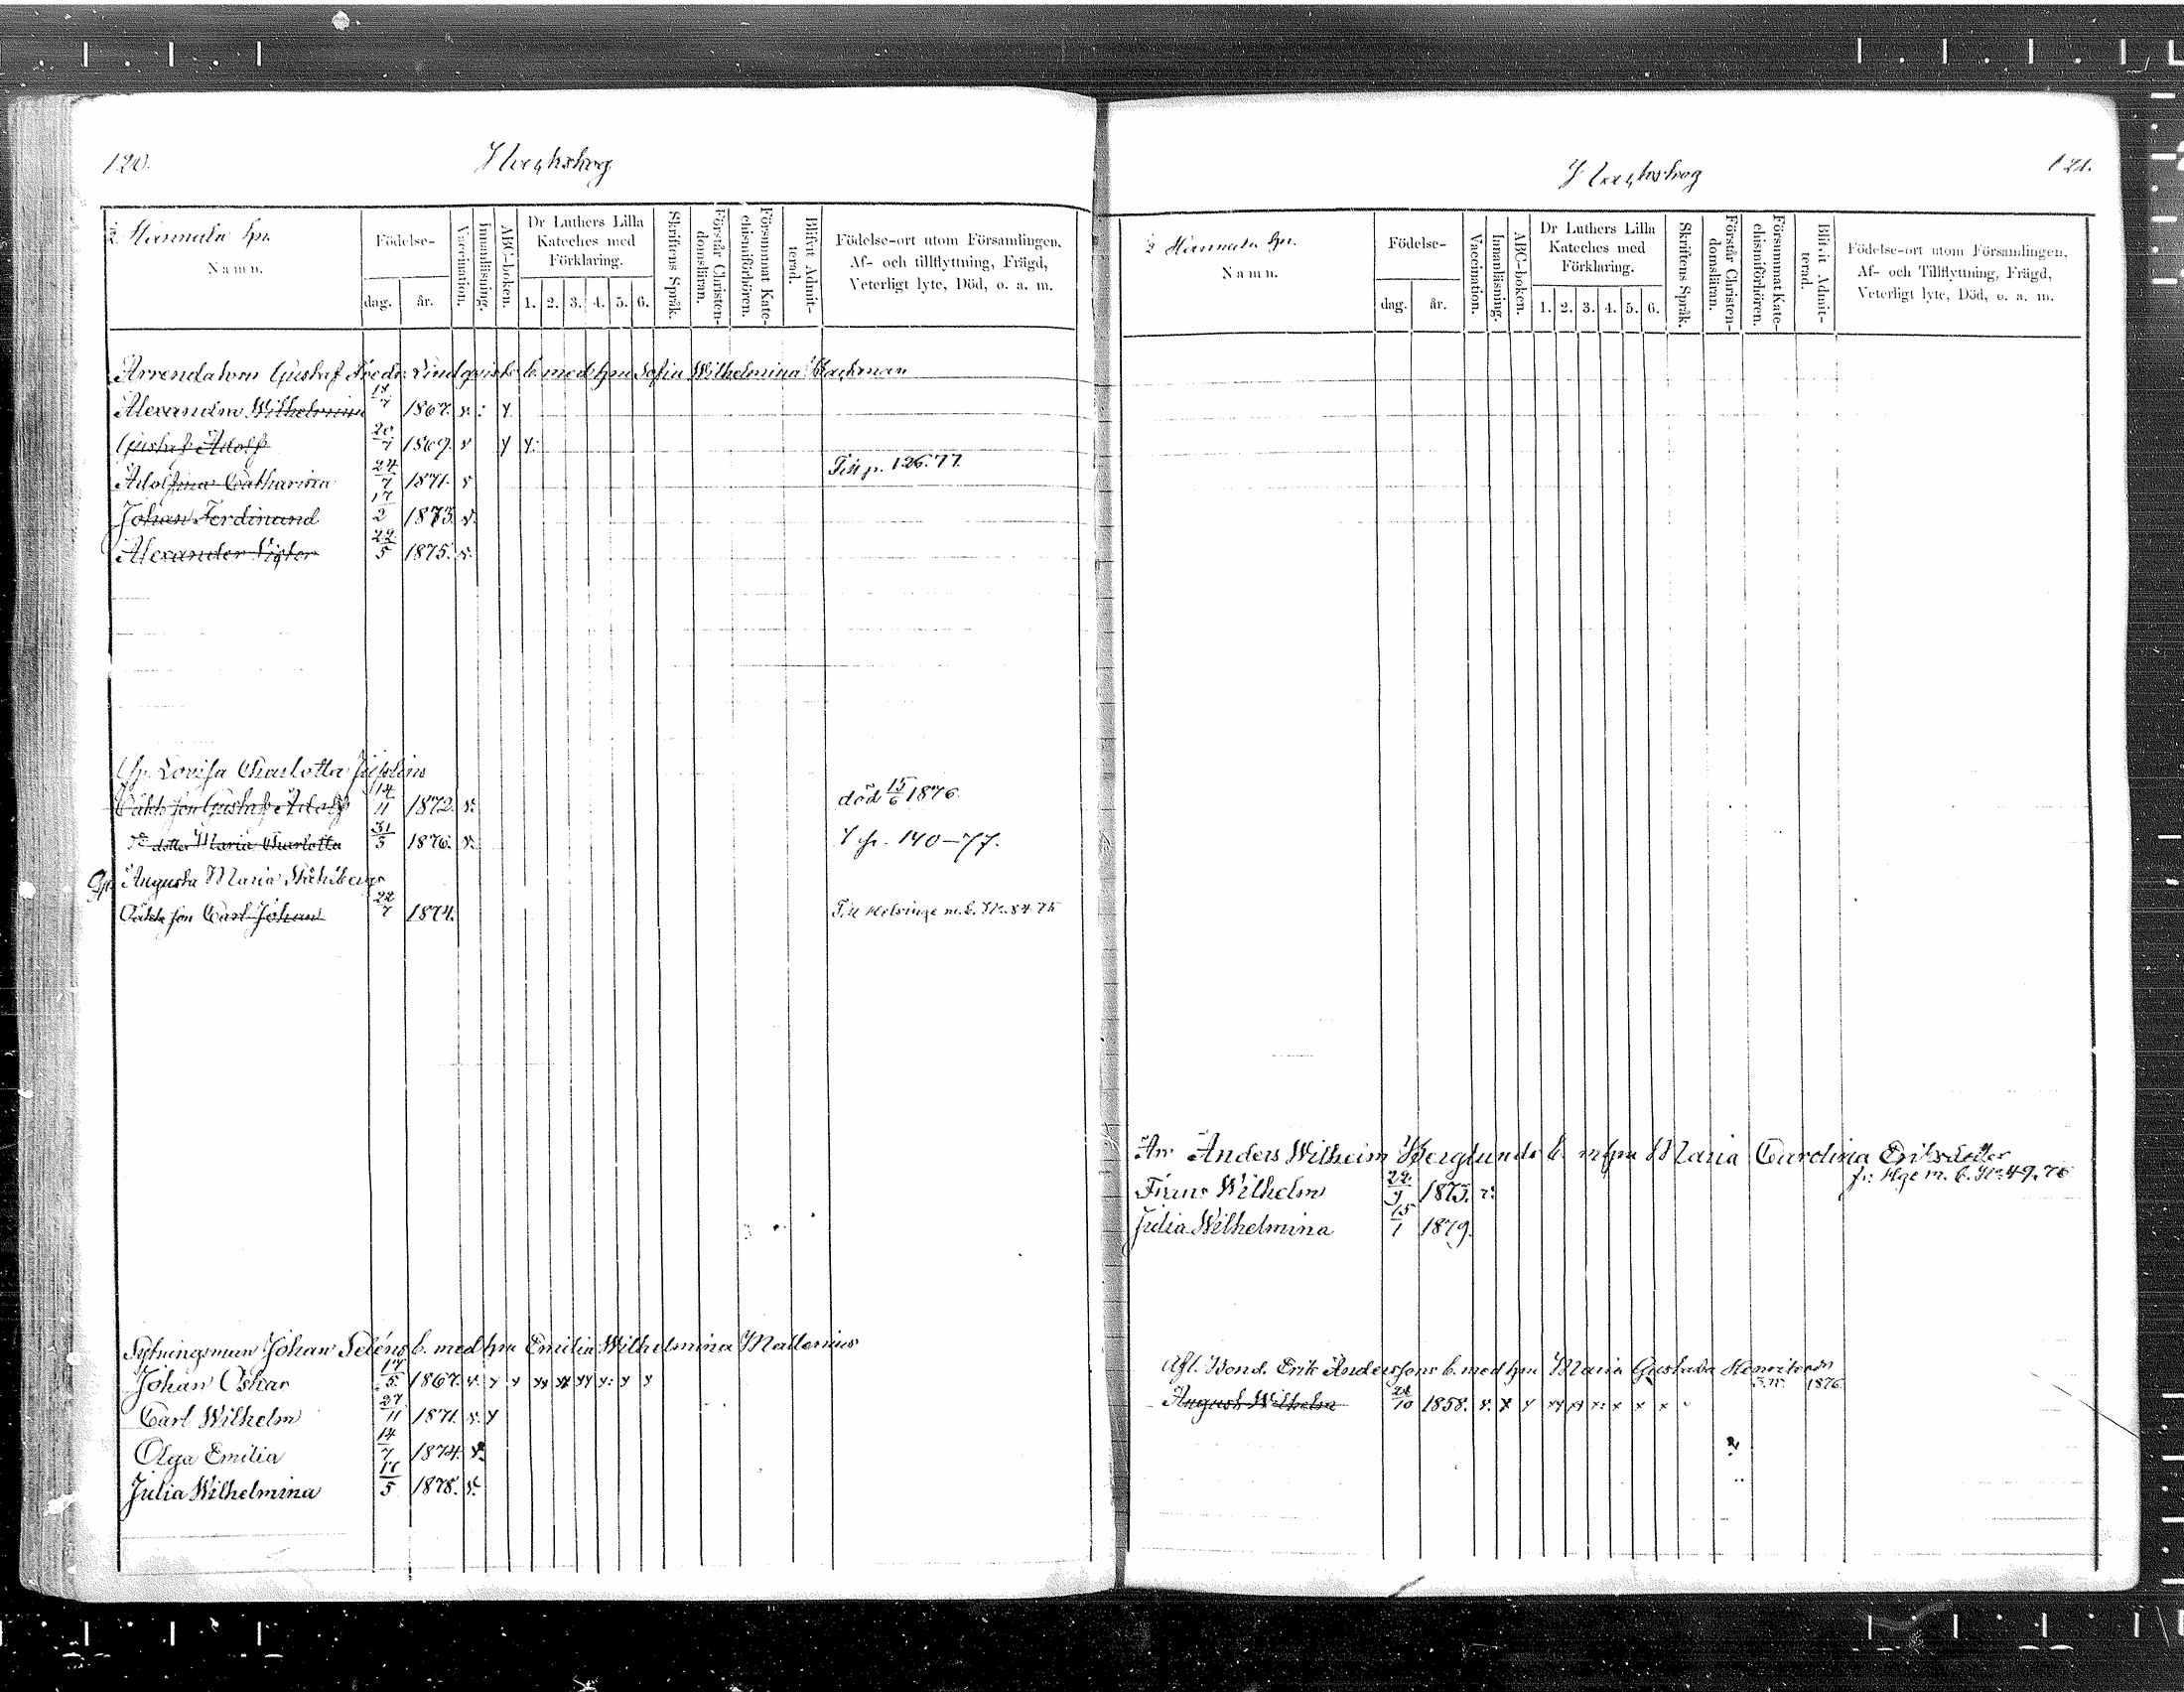 120.
Hannula hn.
Namn.
Födelse-
dag.
år.
Vaccination.
Innanläsning.
ABC-boken.
Dr Luthers Lilla
Kateches med
Förklaring.
1. 2. 3. 4. 5. 6.
Skriftens Språk.
Förstår Christen-
domsläran.
Försummat Kate-
chismiförhören.
Blifvit Admit-
terad.
Födelse-ort utom Församlingen,
Af- och tillflyttning, Frägd,
Veterligt lyte, Död, o. a. m.
Arrendatorn Gustaf Fredr. Lindqvists b. med hnu Sofia Wilhelmina Backman
Alexandra Wilhelmina 18/7 1867. v. : y
Gustaf Adolf 20/7 1869. v y y:
Adolfina Catharina 24/7 1871. v Till p. 126. 77.
Johan Ferdinand 17/2 1873. v.
Alexander Victor 22/5 1875. v.
Lovisa Charlotta
Oäkta son Gustaf Adolf 14/11 1872. v. död 15/6 1876.
dotter Maria Charlotta 31/5 1876. v. 140-77.
Augusta Maria
Oäkta son Carl Johan 22/7 1874. Till Helsinge m. b. No. 84. 75
Sytningsman Johan Seléns b. med hnu Emilia Wilhelmina Mallenius
Johan Oskar 17/5 1867. v. y y xy xy xy y: y y
Carl Wilhelm 27/11 1871. v. y
Olga Emilia 14/7 1874. v.
Julia Wilhelmina 16/5 1878. v.
121.
Hannula hn.
Namn.
Födelse-
dag.
år.
Vaccination.
Innanläsning.
ABC-boken.
Dr Luthers Lilla
Kateches med
Förklaring.
1. 2. 3. 4. 5. 6.
Skriftens Språk.
Förstår Christen-
domsläran.
Försummat Kate-
chismiförhören.
Blifvit Admit-
terad.
Födelse-ort utom Församlingen,
Af- och Tillflyttning, Frägd,
Veterligt lyte, Död, o. a. m.
Arr. Anders Wilhelm Berglunds b. m hnu Maria Carolina Eriksdotter
fr. Hge m. b. No. 49. 76
Frans Wilhelm 22/9 1875. v.
Julia Wilhelmina 15/1 1879.
Afl. Bond. Erik Anderssons b. med hnu Maria Gustava Henriksdr
1876
August Wilhelm 28/10 1858. v. x y xy xy x: x x x